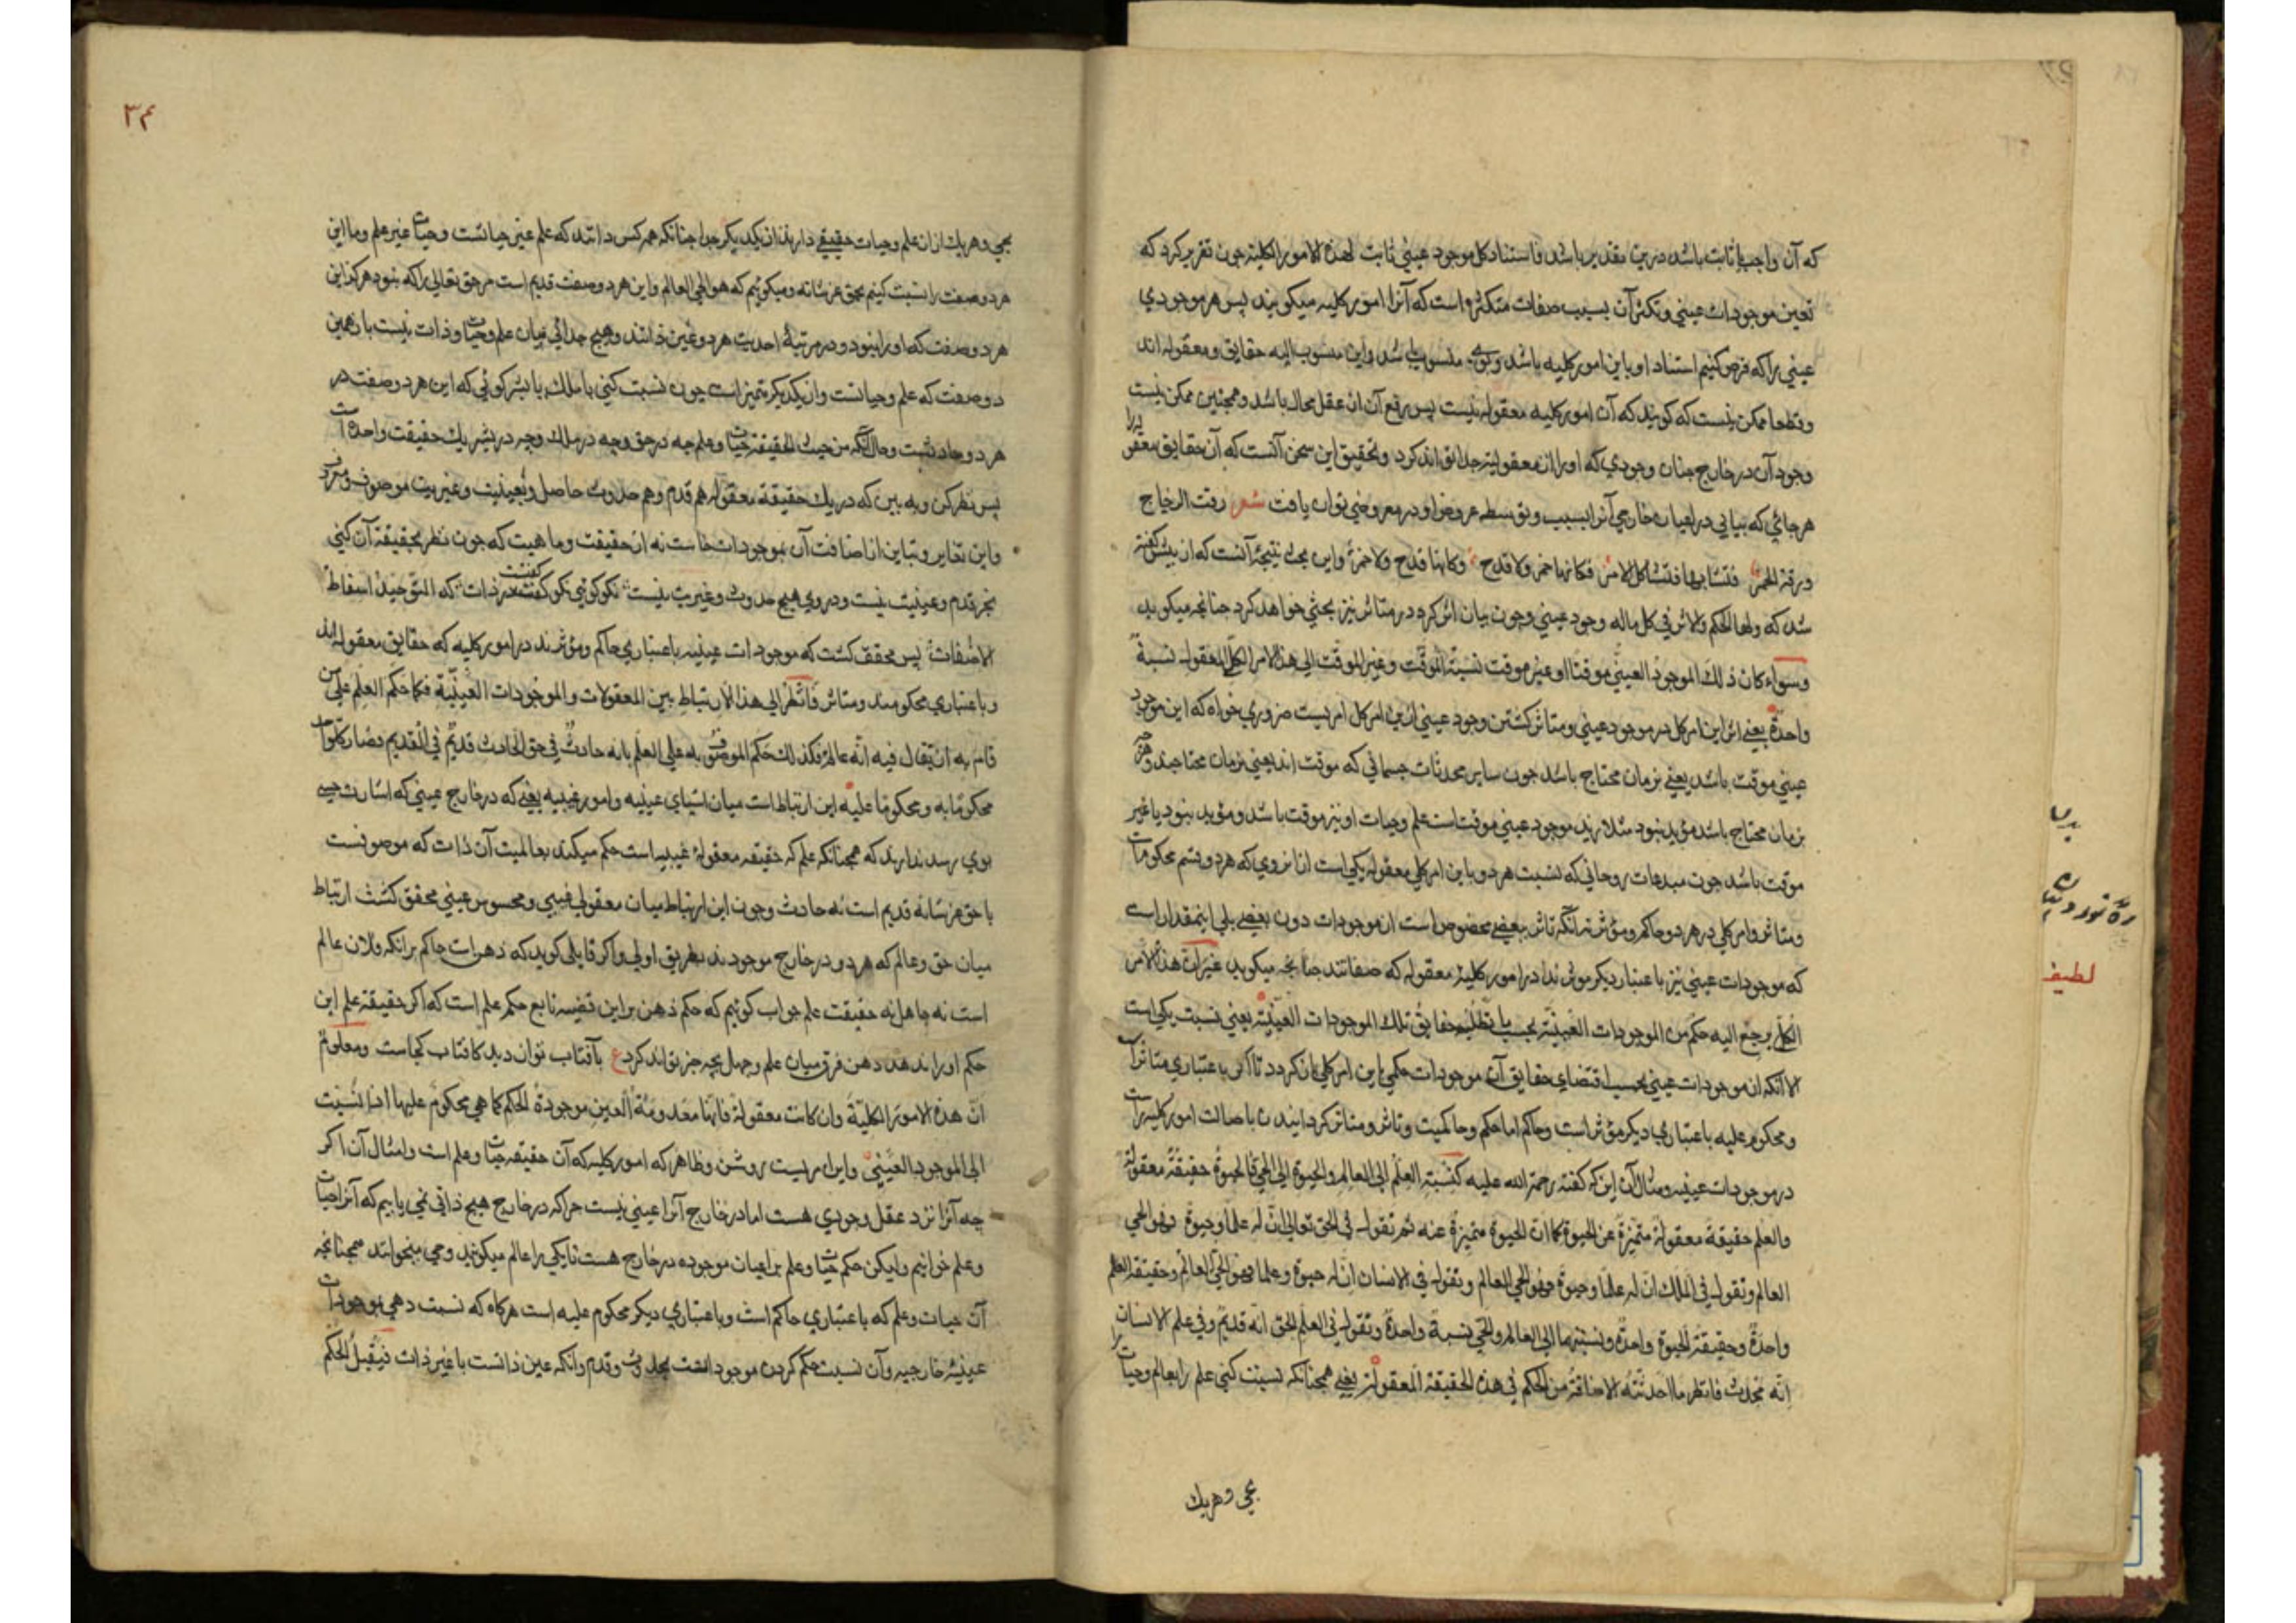 که آن واجب ثابت باشد درین تقدیر باشد فاستناد کل موجود عینی ثابت لهذه الامور الکلیة چون تقریر کرد که
تعین موجودات عینی و تکثر آن بسبب صفات متکثره است که آنرا امور کلیه میکویند پس هر موجودی
عینی را که فرض کنیم استناد او باین امور کلیه باشد و منسوب شد واین منسوب الیه حقایق و معقوله اند
وقطعا ممکن نیست که کویند که آن امور کلیه معقوله نیست پس رفع آن از عقل محال باشد وهمچنین ممکن نیست
وجود آن در خارج چنان وجودی که اورا از معقولیة جدا تواند کرد وتحقیق این سخن آنست که آن حقایق
هرجائی که بیابی در اعیان خارجی آنرا بسبب وتوسط عروض او در معروضی توان یافت شعر رقت الزجاج
ورقت الخمر فتشابها فتشاکل الامر فکانما خمر ولا قدح وکانما قدح ولا خمر واین بحث نتیجۀ آنست که از پیش کفته
شد که ولها الحکم والاثر فی کل ماله وجود عینی وچون بیان اثر کرد در متاثر نیز بحثی خواهد کرد چنانچه میکوید
وسواء کان ذلک الموجود العینی موقتا او غیر موقت نسبة الموقت وغیر الموقت الی هذا الامر الکلی المعقول نسبة
واحدة یعنی اثر این امر کل در موجود عینی ومتاثر کشتن وجود عینی ازین امر کل امریست ضروری خواه که این موجود
عینی موقت باشد یعنی بزمان محتاج باشد چون سایر محدثات جسمانی که موقت اند یعنی بزمان محتاجند
بزمان محتاج باشد مؤبد نبود مثلا زید موجود عینی موقت است علم وحیات او نیز موقت باشد ومؤبد نبود یا غیر
موقت باشد چون مبدعات روحانی که نسبت هر دو باین امر کلی معقوله یکی است از انروی که هر دو قسم محکوم
ومتاثر وامر کلی در هر دو حاکم ومؤثر نه آنکه تاثر ببعضی مخصوص است از موجودات دون بعضی بلی اینمقدار است
که موجودات عینی نیز باعتبار دیکر مؤثرند در امور کلیۀ معقوله که صفاتند چنانچه میکوید غیر ان هذا الامر
الکلی یرجع الیه حکم من الموجودات العینیة بحسب ما تطلبه حقایق تلک الموجودات العینیة یعنی نسبت یکی است
الا آنکه از موجودات عینی بحسب اقتضای حقایق آن موجودات حکمی باین امر کلی باز کردد تا اکر باعتباری متاثر
ومحکوم علیه باعتباری دیکر مؤثر است وحاکم اما حکم وحاکمیت وتاثر ومتاثر کردانیدن باصالت امور کلیه را
در موجودات عینیه ومثال آن این که کفته رحمة الله علیه کنسبة العلم الی العالم والحیوة الی الحی فالحیوة حقیقة معقولة
والعلم حقیقة معقولة متمیزة عن الحیوة کما ان الحیوة متمیزة عنه ثم نقول فی الحق تعالی ان له علما وحیوة فهو الحی
العالم ونقول فی الملک ان له علما وحیوة فهو الحی العالم ونقول فی الانسان ان له حیوة وعلما فهو الحی العالم وحقیقة العلم
واحدة وحقیقة الحیوة واحدة ونسبتهما الی العالم والحی نسبة واحدة ونقول فی العلم الحق انه قدیم وفی علم الانسان
انه محدث فانظر ما احدثته الاضافة من الحکم فی هذه الحقیقة المعقولة یعنی همچنانکه نسبت کنی علم را بعالم وحیات را
بحی وهریک
لطیف
۳۴
بحی وهریک از ان علم وحیات حقیقتی دارند از یکدیکر جدا چنانکه همه کس دانند که علم غیر حیاتست وحیات غیر علم وما این
هر دو صفت را نسبت کنیم بحق عز شانه ومیکوییم که هو الحی العالم واین هر دو صفت قدیم است مر حق تعالی را که نبود هرکز این
هر دو صفت که او را نبود ودر مرتبۀ احدیت هر دو عین ذاتند وهیچ جدائی میان علم وحیات وذات نیست باز همین
دو صفت که علم وحیاتست واز یکدیکر متمیز است چون نسبت کنی با ملک یا بشر کوئی که این هر دو صفت در
هر دو حادثست وحال آنکه من حیث الحقیقة حیات وعلم چه در حق وچه در ملک وچه در بشر یک حقیقت واحده است
پس نظر کن وبه بین که در یک حقیقة معقوله هم قدم وهم حدوث حاصل وبعینیت وغیریت موصوف
واین تغایر وتباین از اضافت آن بموجودات خاست نه از حقیقت وماهیت که چون نظر بحقیقة آن کنی
بجز قدم وعینیت نیست ودر وی هیچ حدوث وغیریت نیست نکو کوئی نکو کفتست در ذات که التوحید اسقاط
الاضافات پس محقق کشت که موجودات عینیه باعتباری حاکم ومؤثرند در امور کلیه که حقایق معقوله اند
وباعتباری محکومند ومتاثر فانظر الی هذا الارتباط بین المعقولات والموجودات العینیة فکما حکم العلم علی من
قام به ان یقال فیه انه عالم فکذلک حکم الموصوف به علی العلم بانه حادث فی حق الحادث قدیم فی القدیم فصار کل واحد
محکوما به ومحکوما علیه این ارتباط است میان اشیای عینیه وامور غیبیه یعنی که در خارج عینی که اشارت حسی
بوی رسد ندارند که همچنانکه علم که حقیقه معقولۀ غیبیه است حکم میکند بعالمیت آن ذات که موصوفست
با حق عز شانه قدیم است نه حادث وچون این ارتباط میان معقولی غیبی ومحسوس عینی محقق کشت ارتباط
میان حق وعالم که هر دو در خارج موجودند بطریق اولی واکر قایلی کوید که ذهن است حاکم برانکه فلان عالم
است نه جاهل نه حقیقت علم جواب کوییم که حکم ذهن بر این قضیه تابع حکم علم است که اکر حقیقة علم این
حکم اورا ندهد ذهن فرق میان علم وجهل بچه چیز تواند کرد ع بآفتاب توان دید کافتاب کجاست ومعلوم
ان هذه الامور الکلیة وان کانت معقولة فانها معدومة العین موجودة الحکم کما هی محکوم علیها اذا نسبت
الی الموجود العینی واین امریست روشن وظاهر که امور کلیه که آن حقیقه حیات وعلم است وامثال آن اکر
چه آنرا نزد عقل وجودی هست اما در خارج آنرا عینی نیست چراکه در خارج هیچ ذاتی نمی یابیم که آنرا حیات
وعلم خوانیم ولیکن حکم حیات وعلم بر اعیان موجوده در خارج هست تا یکی را عالم میکویند وحی میخوانند همچنانچه
آن حیات وعلم که باعتباری حاکم است وباعتباری دیکر محکوم علیه است هرکاه که نسبت دهی بموجودات
عینیۀ خارجیه وآن نسبت حکم کردن موجوداتست بحدوث وقدم وآنکه عین ذاتست یا غیر ذات فیقبل الحکم